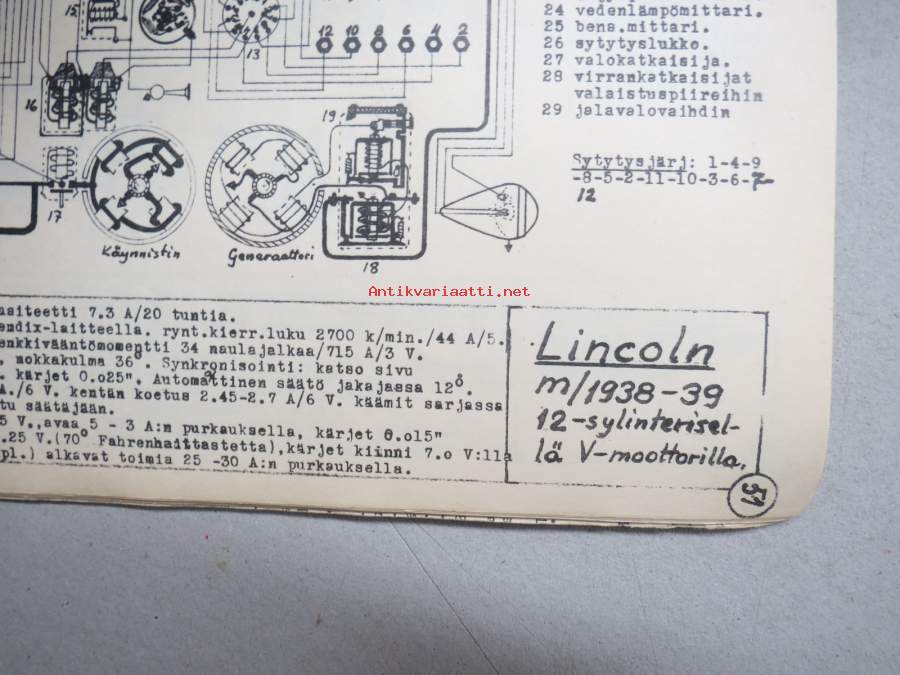 24 vedenlämpömittari.
25 bens.mittari.
26 sytytyslukko.
27 valokatkaisija.
28 virrankatkaisijat
valaistuspiireihin
29 jalavalovaihdin
Sytytysjärj: 1-4-9
-8-5-2-11-10-3-6-7-
12
15
13
12 10 8 6 4 2
16
19
17
18
Käynnistin
Generaattori
Antikvariaatti.net
asiteetti 7.3 A/20 tuntia.
endix-laitteella. rynt.kierr.luku 2700 k/min./44 A/5.
enkkivääntömomentti 34 naulajalkaa/715 A/3 V.
. nokkakulma 36°. Synkronisointi: katso sivu
. kärjet 0.025". Automaattinen säätö jakajassa 12°.
A./6 V. kentän koetus 2.45-2.7 A/6 V. käämit sarjassa
tu säätäjään.
5 V.,avaa 5 - 3 A:n purkauksella, kärjet 0.015"
.25 V.(70° Fahrenhaittastetta),kärjet kiinni 7.0 V:lla
pl.) alkavat toimia 25 -30 A:n purkauksella.
Lincoln
m/1938-39
12-sylinterisel-
lä V-moottorilla.
51